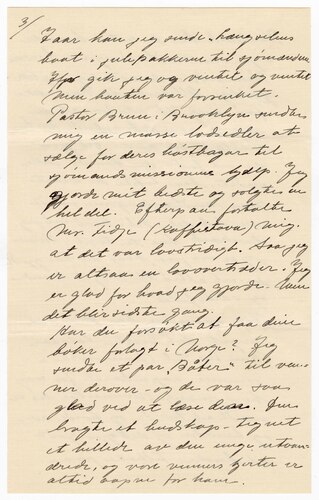 3/
Iaar kan jeg sende
baat i julepakkerne til sjömændene
gik jeg og ventet og ventet
men baaten var forsinket.
Pastor Bruun i Brooklyn sendte
mig en masse lodsedler at
sælge for deres höstbazar til
sjömandsmissionens hjelp. Jeg
gjorde mit bedste og solgte en
hel del. Efterpaa fortalte
Mr. Tidje (Kaffistova) mig,
at det var lovstridigt. Saa jeg
er altsaa en lovovertræder. Jeg
er glad for hvad jeg gjorde - men
det blir sidste gang.
Har du forsökt at faa dine
böker forlagt i Norge? Jeg
sendte et par "Båter" til ven-
ner derover - og de var saa
glad ved at læse dem. Den
bragte et budskap - tegnet
et billede av den unge utvan-
drede, og vore venners hjerter er
altid aapne for ham.